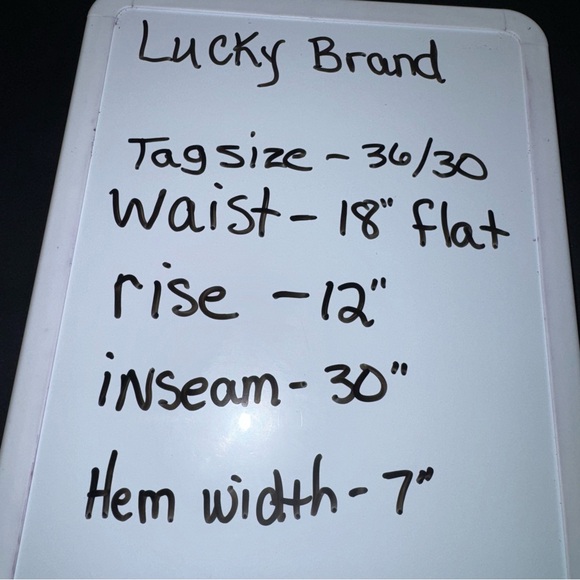 Lucky Brand
Tag size - 36/30
Waist - 18" flat
rise - 12"
inseam - 30"
Hem width - 7"